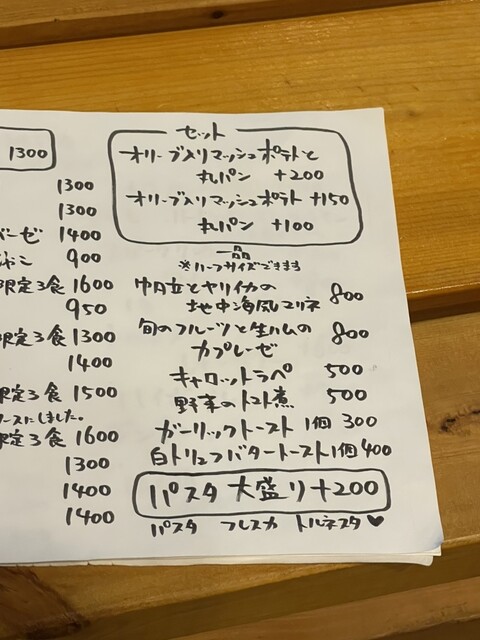 1300
1300
1300
ーゼ 1400
じゃこ 900
限定3食 1600
950
限定3食 1300
1400
限定3食 1500
ースにしました。
限定3食 1600
1300
1400
1400
セット
オリーブ入りマッシュポテトと
丸パン +200
オリーブ入りマッシュポテト +150
丸パン +100
一品
※ハーフサイズできます
帆立とヤリイカの
地中海風マリネ 800
旬のフルーツと生ハムの
カプレーゼ 800
キャロットラペ 500
野菜のトマト煮 500
ガーリックトースト 1個 300
白トリュフバタートースト 1個 400
パスタ 大盛り+200
パスタ フレスカ トルネスタ♥